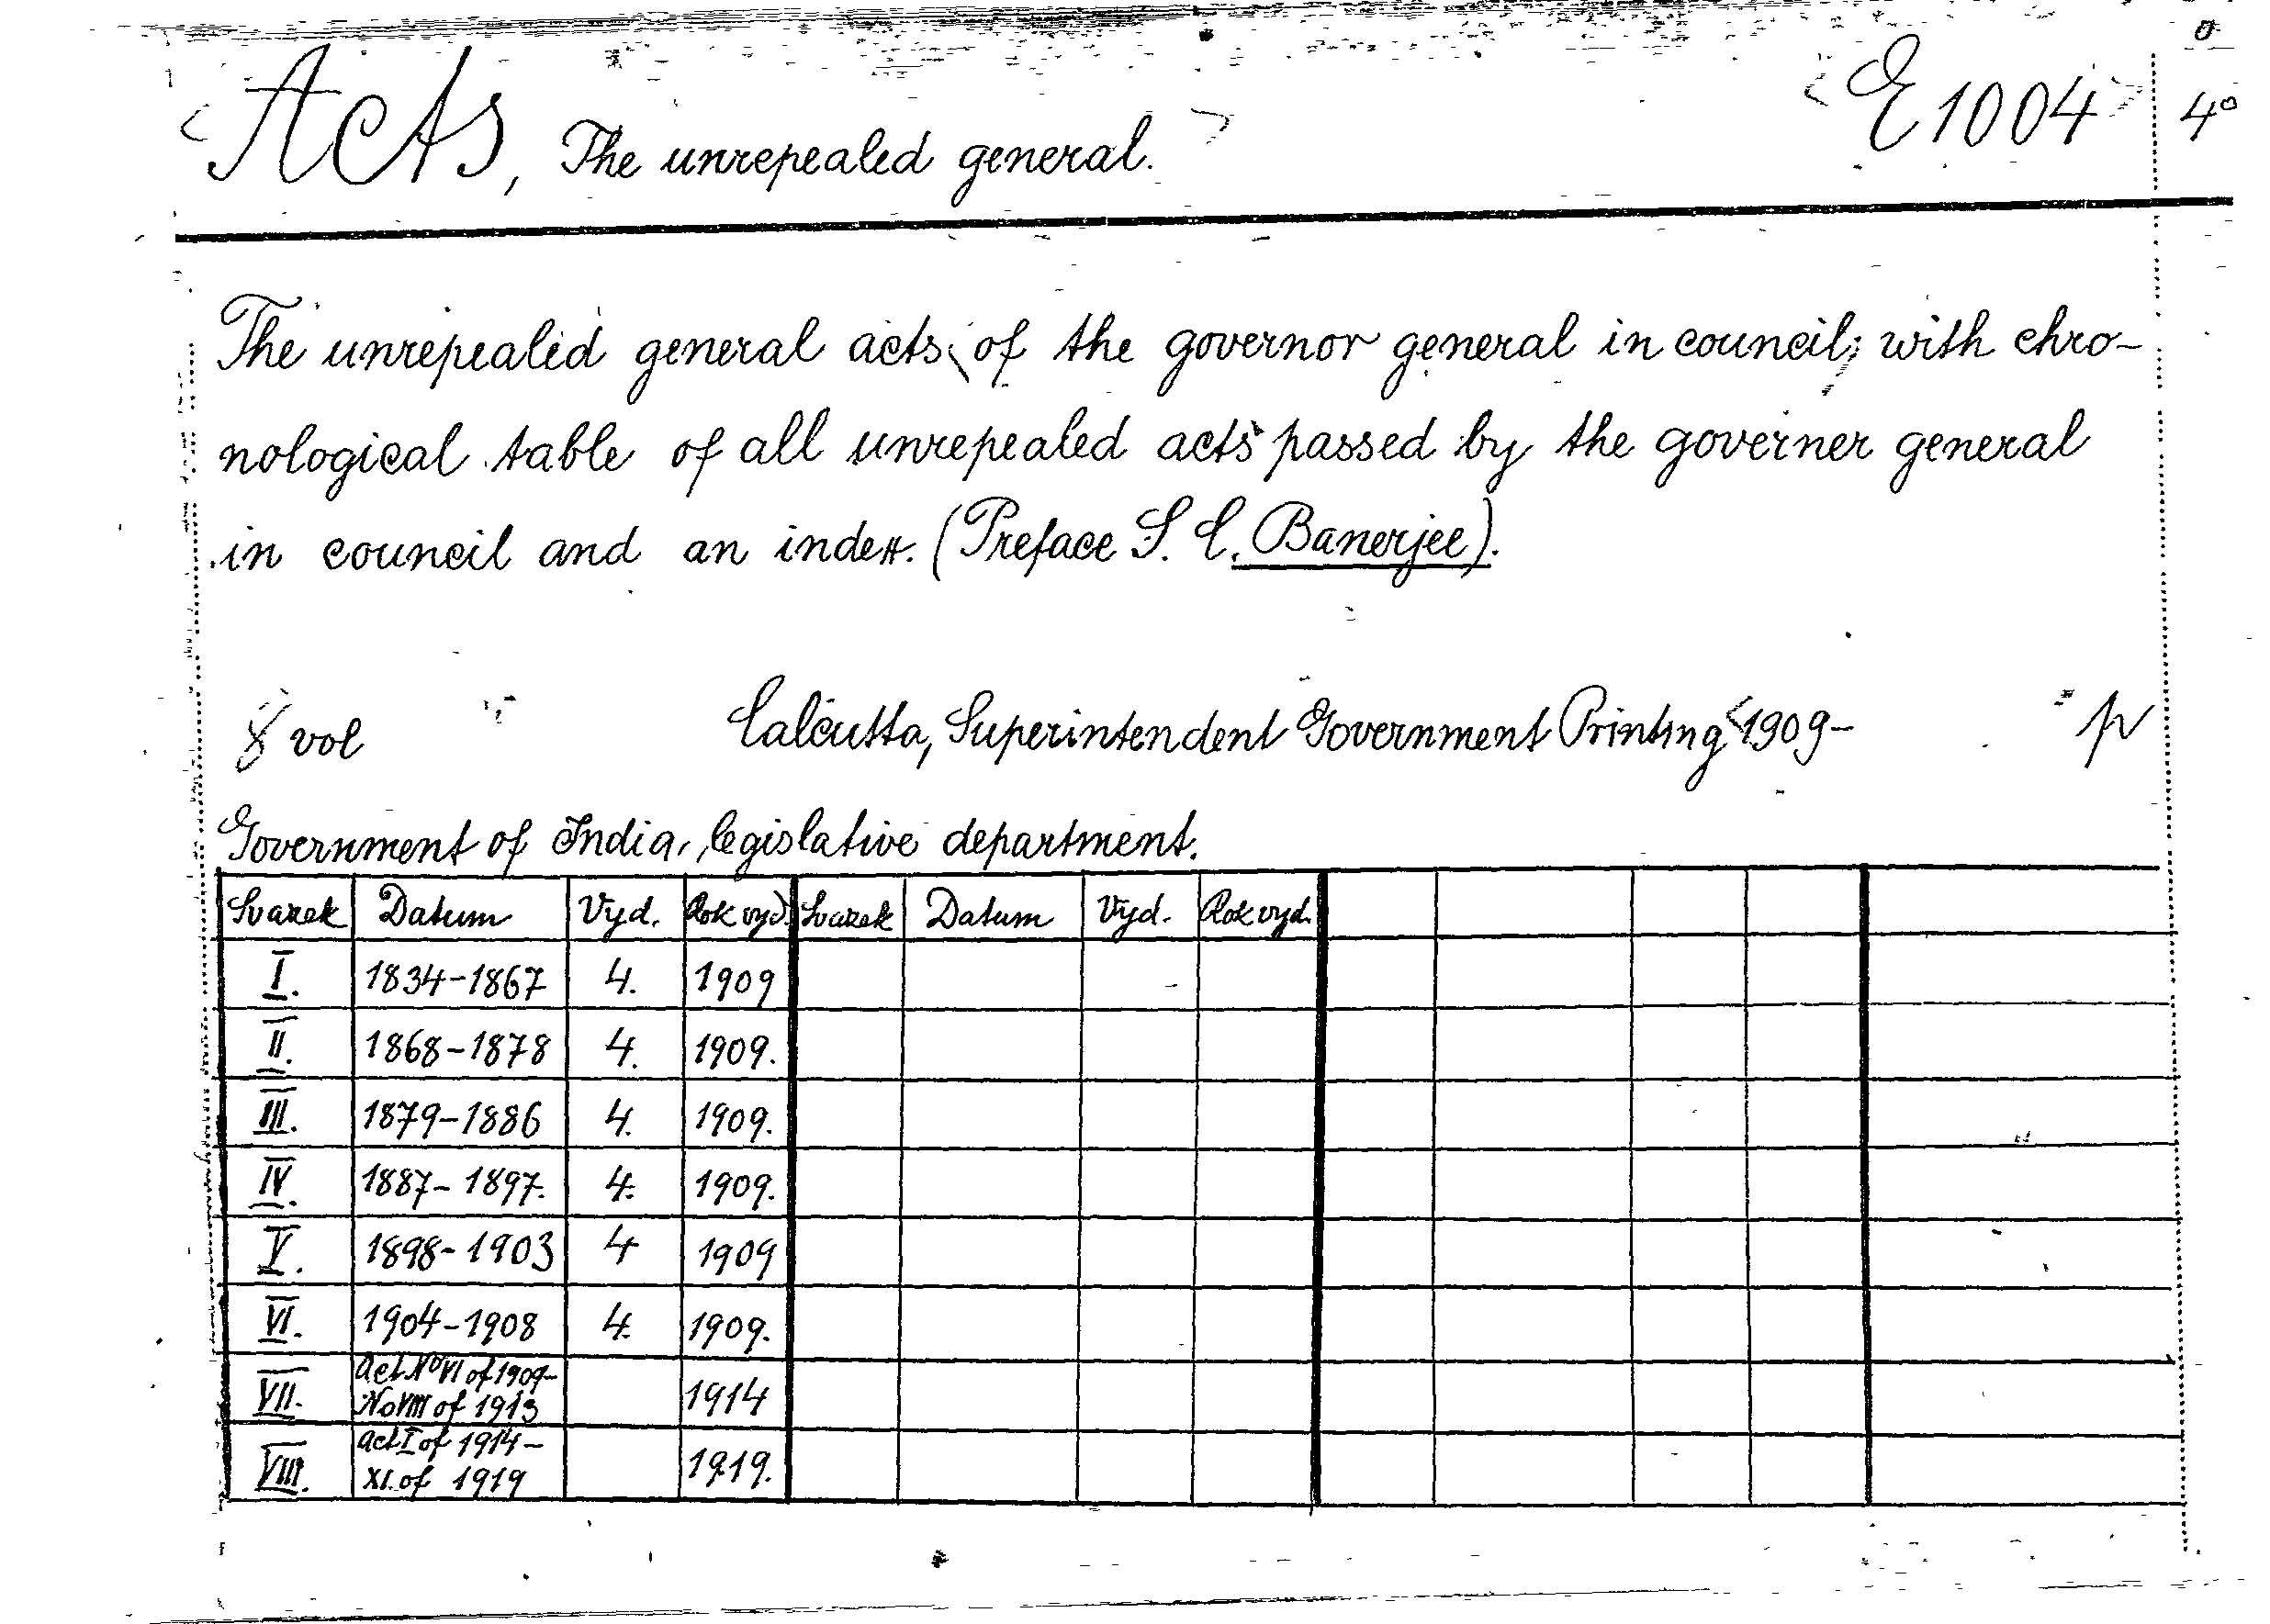 Acts, The unrepealed general.
E 1004
4°
The unrepealed general acts of the governor general in council; with chro-
nological table of all unrepealed acts passed by the governer general
in council and an index. (Preface S. C. Banerjee).
8 vol Calcutta, Superintendent Government Printing 1909-
Government of India, legislative department.
Svazek Datum Vyd. Rok vyd. Svazek Datum Vyd. Rok vyd.
I. 1834-1867 4. 1909
II. 1868-1878 4. 1909.
III. 1879-1886 4. 1909.
IV. 1887-1897. 4. 1909.
V. 1898-1903 4 1909
VI. 1904-1908 4. 1909.
VII. Act No VI of 1909- 1914
No VIII of 1913
VIII. Act I of 1914- 1919.
XI. of 1919